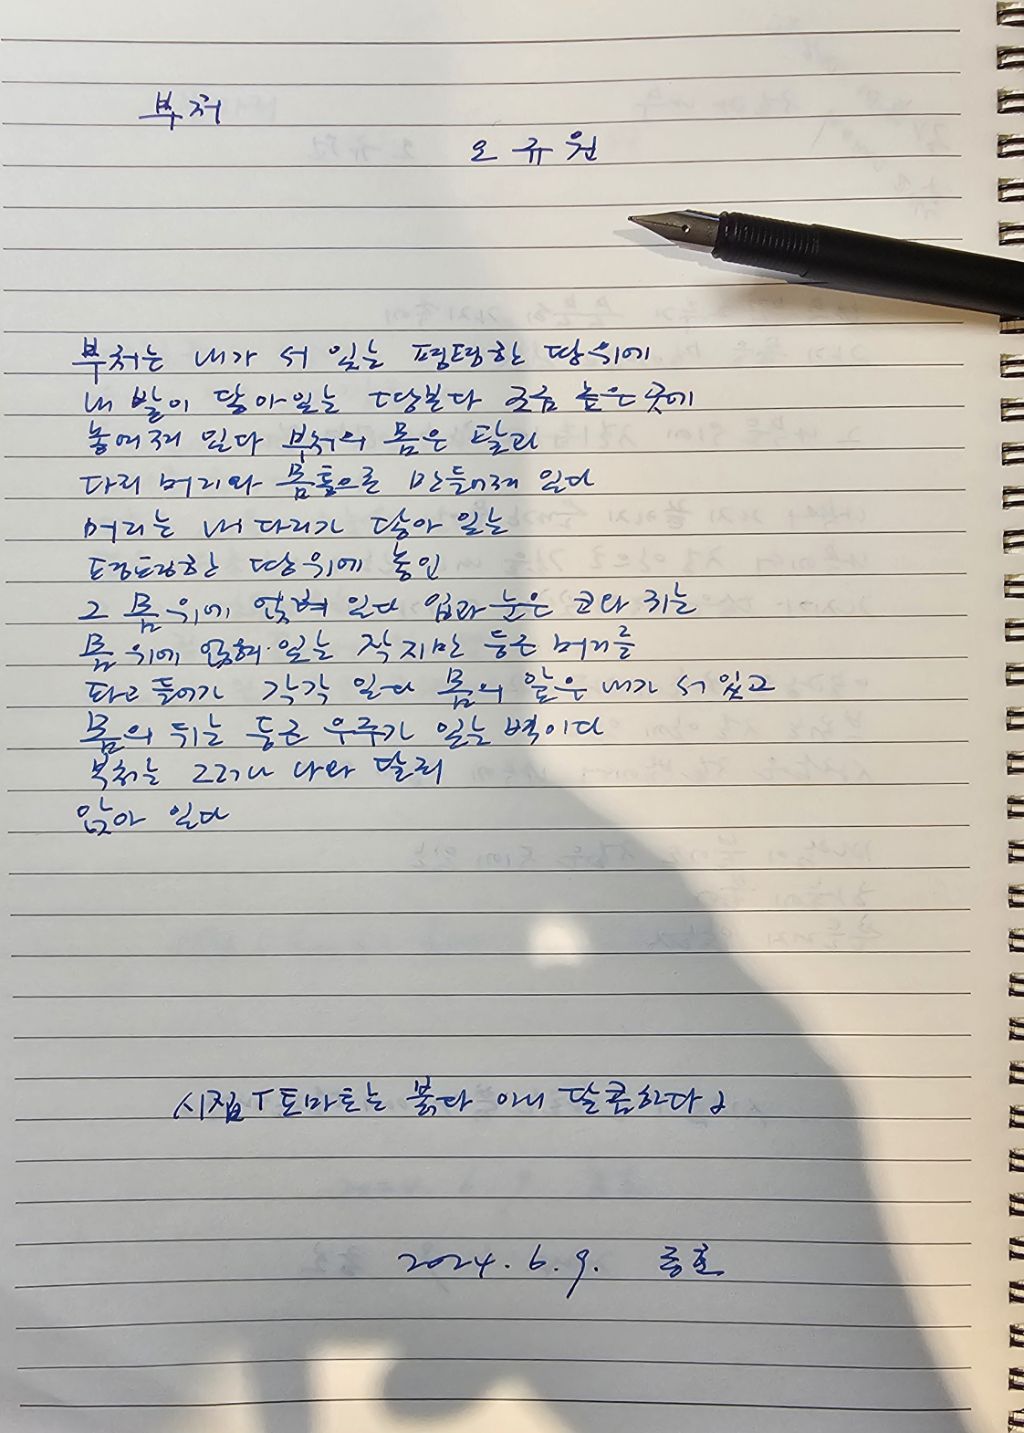 부처
오규원
부처는 내가 서 있는 평평한 땅위에
내 발이 닿아있는 땅보다 조금 높은 곳에
놓여져 있다 부처의 몸은 달라
다리 머리와 몸통으로 만들어져 있다
머리는 내 다리가 닿아 있는
평평한 땅위에 놓인
그 몸위에 얹혀 있다 입과 눈은 코와 귀는
몸 위에 얹혀 있는 작지만 둥근 머리를
파고 들어가 각각 있다 몸의 앞은 내가 서 있고
몸의 뒤는 둥근 우주가 있는 벽이다
부처는 그러나 나와 달리
앉아 있다
시집 「토마토는 붉다 아니 달콤하다」
2024. 6. 9. 종호